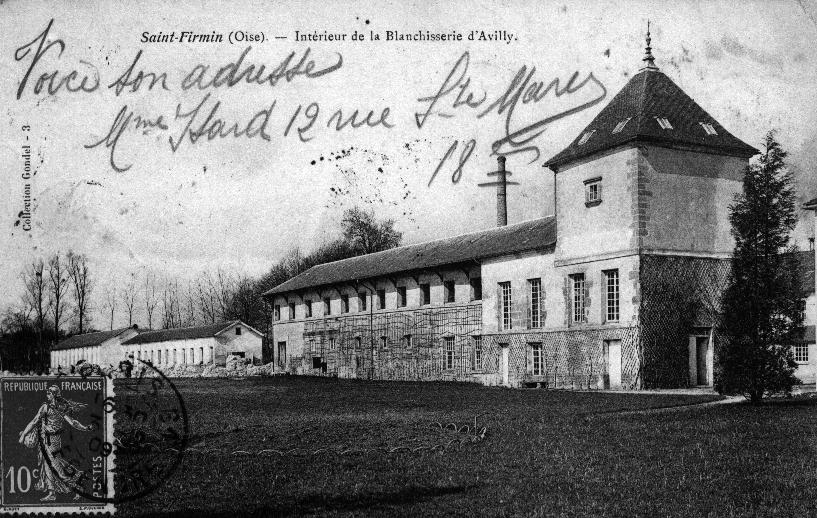 Saint-Firmin (Oise). — Intérieur de la Blanchisserie d'Avilly.
Voici son adresse
Mme Isard 12 rue Ste Marie
18
Collection Gondel - 3
REPUBLIQUE FRANÇAISE
10c
POSTES